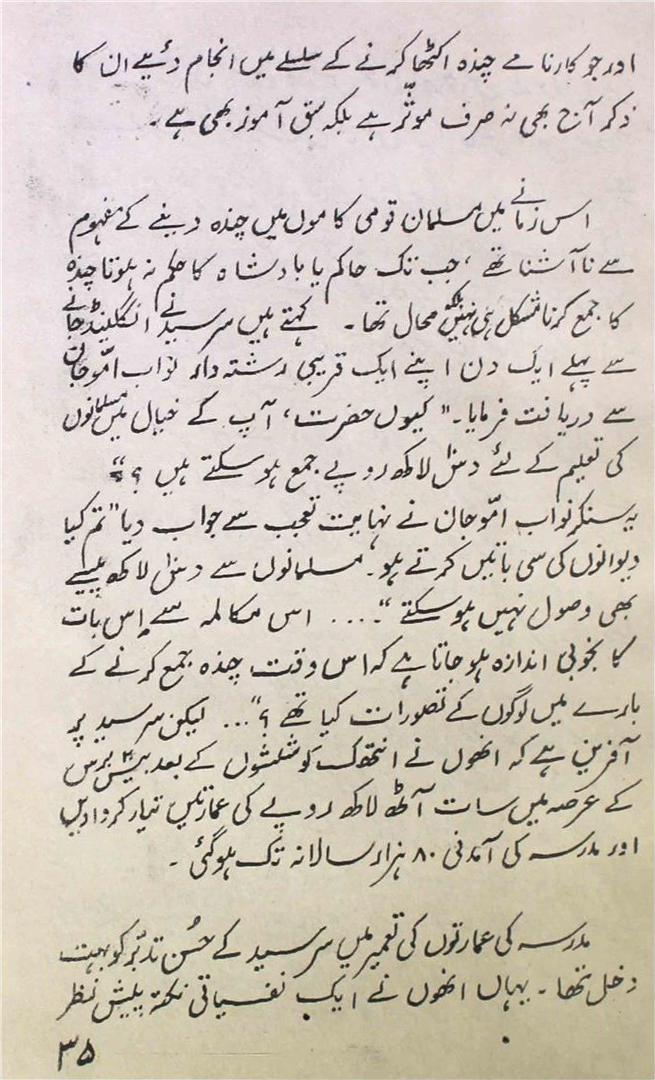 اور جو کارنامے چندہ اکٹھا کرنے کے سلسلے میں انجام دئیے ان کا
ذکر آج بھی نہ صرف موثّر ہے بلکہ سبق آموز بھی ہے۔
اس زمانے میں مسلمان قومی کاموں میں چندہ دینے کے مفہوم
سے ناآشنا تھے ، جب تک حاکم یا بادشاہ کا حکم نہ ہوتا چندہ
کا جمع کرنا مشکل ہی نہیں بلکہ محال تھا۔ کہتے ہیں سرسید نے انگلینڈ جانے
سے پہلے ایک دن اپنے ایک قریبی رشتہ دار نواب امّو جان
سے دریافت فرمایا۔ " کیوں حضرت ، آپ کے خیال میں مسلمانوں
کی تعلیم کے لئے دس لاکھ روپے جمع ہو سکتے ہیں ؟"
یہ سنکر نواب امّو جان نے نہایت تعجب سے جواب دیا " تم کیا
دیوانوں کی سی باتیں کرتے ہو۔ مسلمانوں سے دس لاکھ پیسے
بھی وصول نہیں ہو سکتے "۔ .... اس مکالمہ سے اِس بات
کا بخوبی اندازہ ہو جاتا ہے کہ اس وقت چندہ جمع کرنے کے
بارے میں لوگوں کے تصورات کیا تھے ؟" ... لیکن سرسید پر
آفرین ہے کہ انھوں نے انتھک کوششوں کے بعد بیس ۲۰ برس
کے عرصہ میں سات آٹھ لاکھ روپے کی عمارتیں تیار کروا دیں
اور مدرسہ کی آمدنی ۸۰ ہزار سالانہ تک ہو گئی ۔
مدرسہ کی عمارتوں کی تعمیر میں سرسید کے حُسن تدبّر کو بہت
دخل تھا۔ یہاں انھوں نے ایک نفسیاتی نکتہ پیش نظر
۳۵